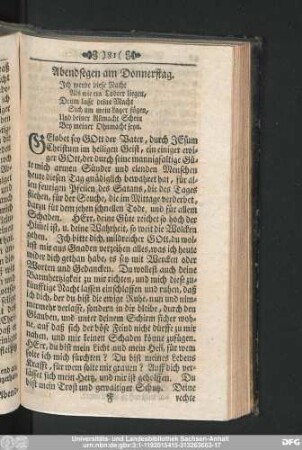 )81(
Abendsegen am Donnerstag.
Ich werde diese Nacht
Als wie ein Todter liegen,
Drum lasse deine Macht
Sich um mein Lager fügen,
Und deiner Allmacht Schein
Bey meiner Ohnmacht seyn.
GElobet sey GOtt der Vater, durch JEsum
Christum im heiligen Geist, ein einiger ewi-
ger GOtt, der durch seine mannigfaltige Gü-
te mich armen Sünder und elenden Menschen
heute diesen Tag gnädiglich bewahret hat, für al-
len feurigen Pfeilen des Satans, die des Tages
fliehen, für der Seuche, die im Mittage verderbet,
darzu für dem jehen schnellen Tode, und für allem
Schaden. HErr, deine Güte reichet so hoch der
Himel ist, u. deine Wahrheit, so weit die Wolcken
gehen. Ich bitte dich, mildreicher GOtt, du wol-
lest mir aus Gnaden verzeihen alles, was ich heute
wider dich gethan habe, es sey mit Wercken oder
Worten und Gedancken. Du wollest auch deine
Barmhertzigkeit zu mir richten, und mich diese zu-
künfftige Nacht lassen einschlaffen und ruhen, daß
ich dich, der du bist die ewige Ruhe, nun und nim-
mermehr verlasse, sondern in dir bleibe, durch den
Glauben, und unter deinem Schirm sicher woh-
ne, auf daß sich der böse Feind nicht dürffe zu mir
nahen, und mir keinen Schaden könne zufügen.
HErr, du bist mein Licht und mein Heil, für wem
solte ich mich fürchten? Du bist meines Lebens
Krafft, für wem solte mir grauen? Auff dich ver-
lässet sich mein Hertz, und mir ist geholffen. Du
bist mein Trost und gewaltiger Schutz. Deine
F rechte
Universitäts- und Landesbibliothek Sachsen-Anhalt